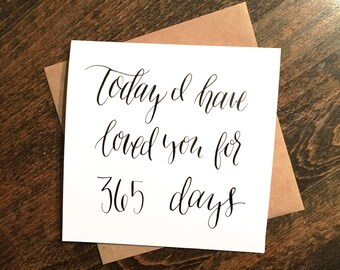 Today I have
loved you for
365 days